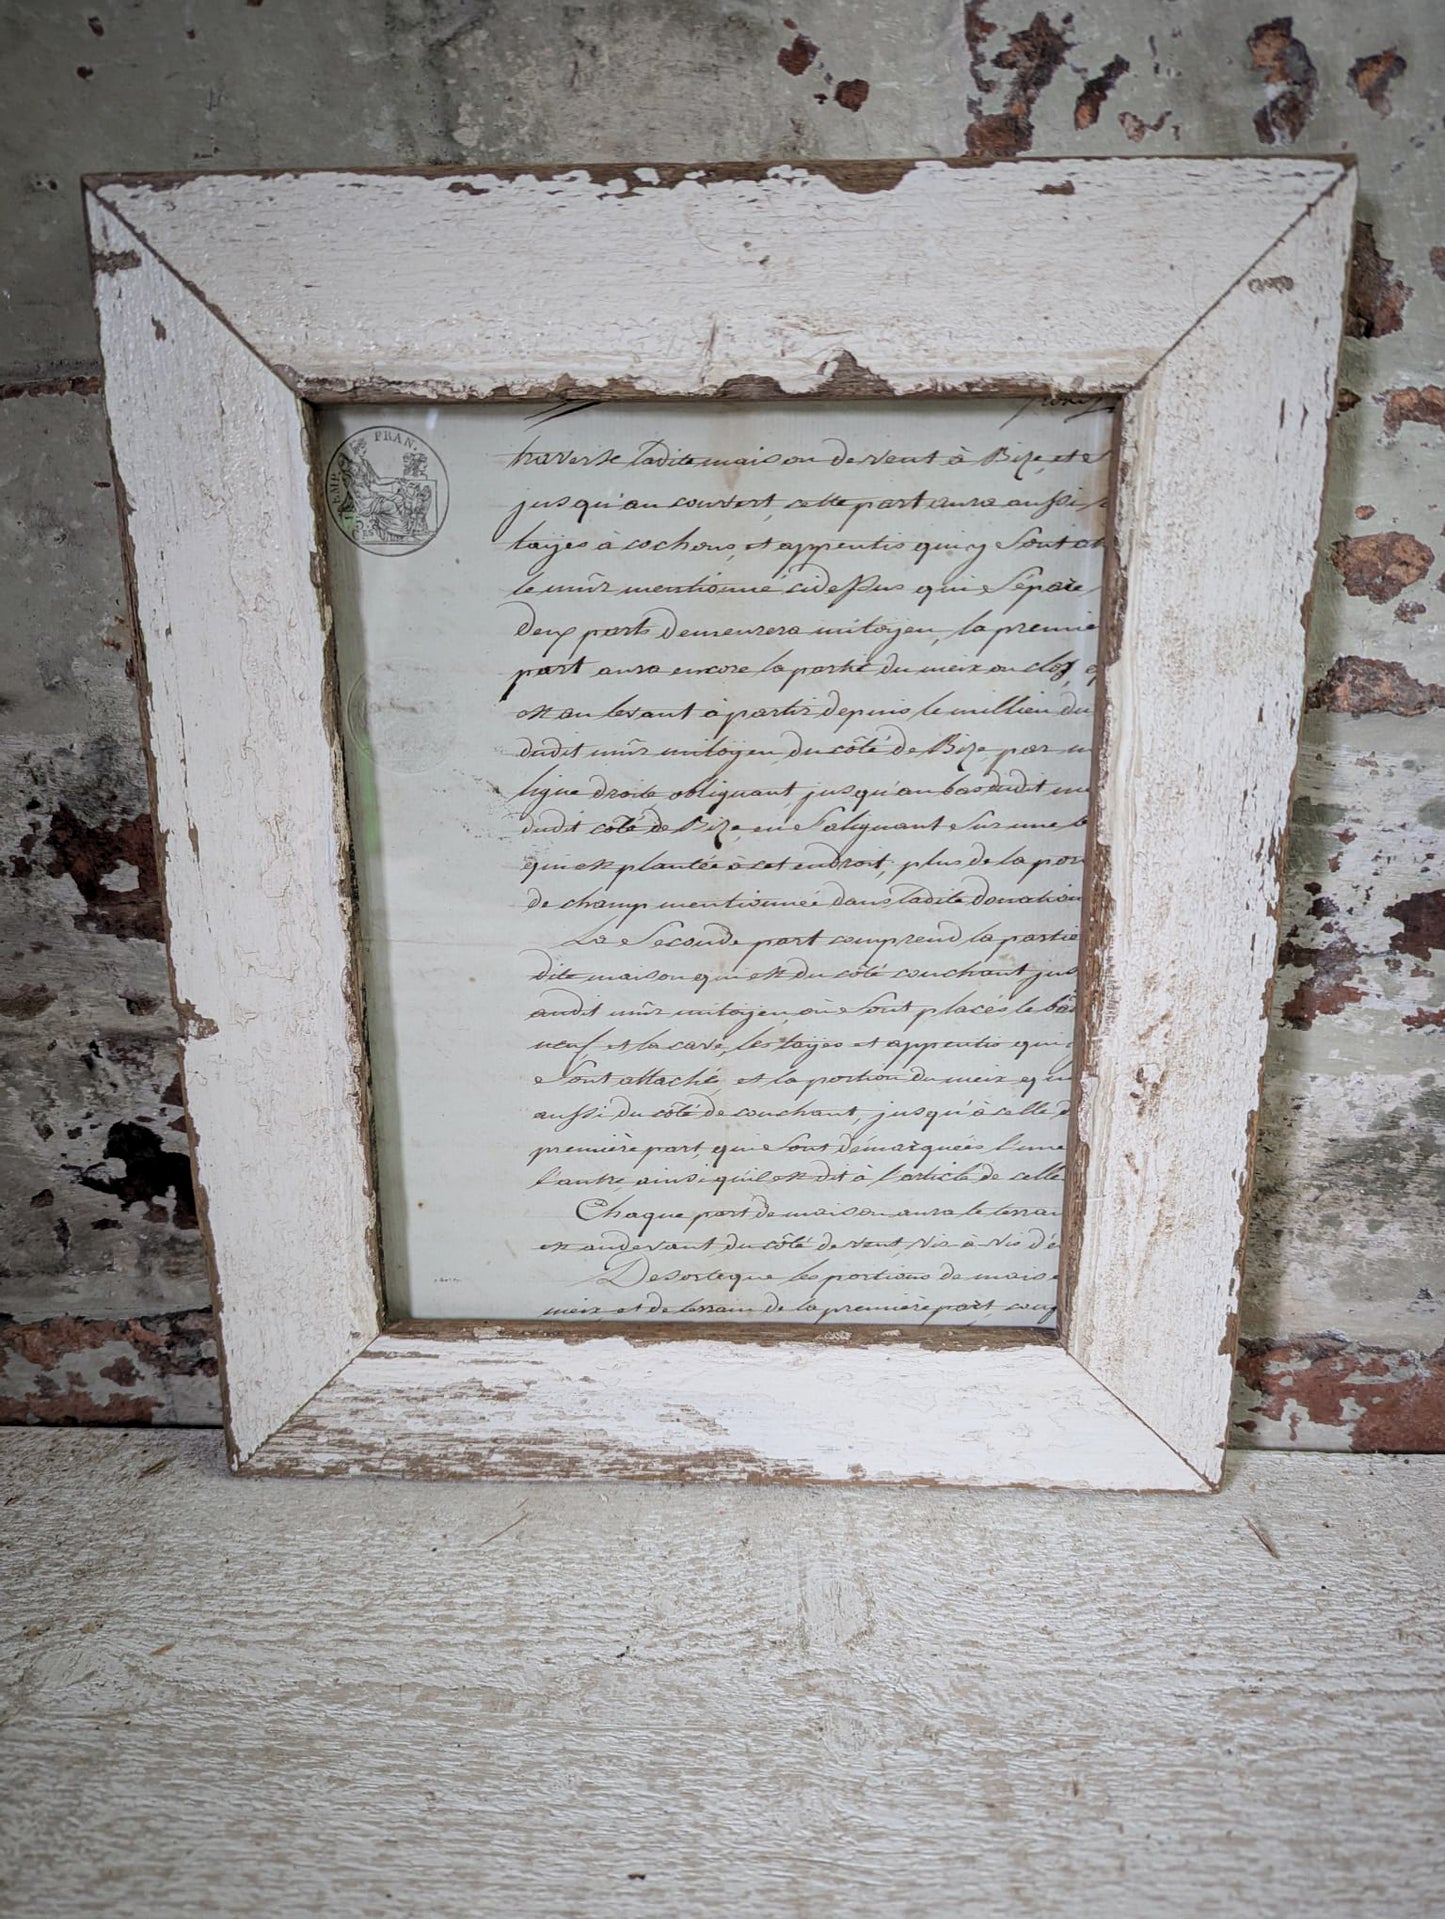 EMP. FRAN.
traverse ladite maison de vent à Bize, et
jusqu'au couvert, cette part aura aussi
tayes à cochons, et appentis qui y sont at
le mûr mentionné cidessus qui sépare
deux parts demeurera mitoyen, la premie
part aura encore la partie du meix ou clos,
est au levant à partir depuis le millieu du
dudit mûr mitoyen, du côté de Bize, par u
ligne droite obliguant jusqu'au bas dudit me
dudit côté de Bize, en s'aliguant sur une
qui est plantée à cet endroit; plus de la por
de champ mentionnée dans ladite donation
La seconde part comprend la partie
dite maison qui est du côté couchant jus
audit mûr mitoyen, où sont placés le bâ
neuf, et la cave, les tayes et appentis qui
sont attaché, et la portion du meix qui
aussi du côté de couchant, jusqu'à celle d
première part, qui sont démarquées l'une
l'autre, ainsi qu'il est dit à l'article de celle
Chaque part de maison aura le terrai
est audevant du côté de vent, vis à vis d'e
Desorteque les portions de maiso
meix, et de terrain de la première part, comp